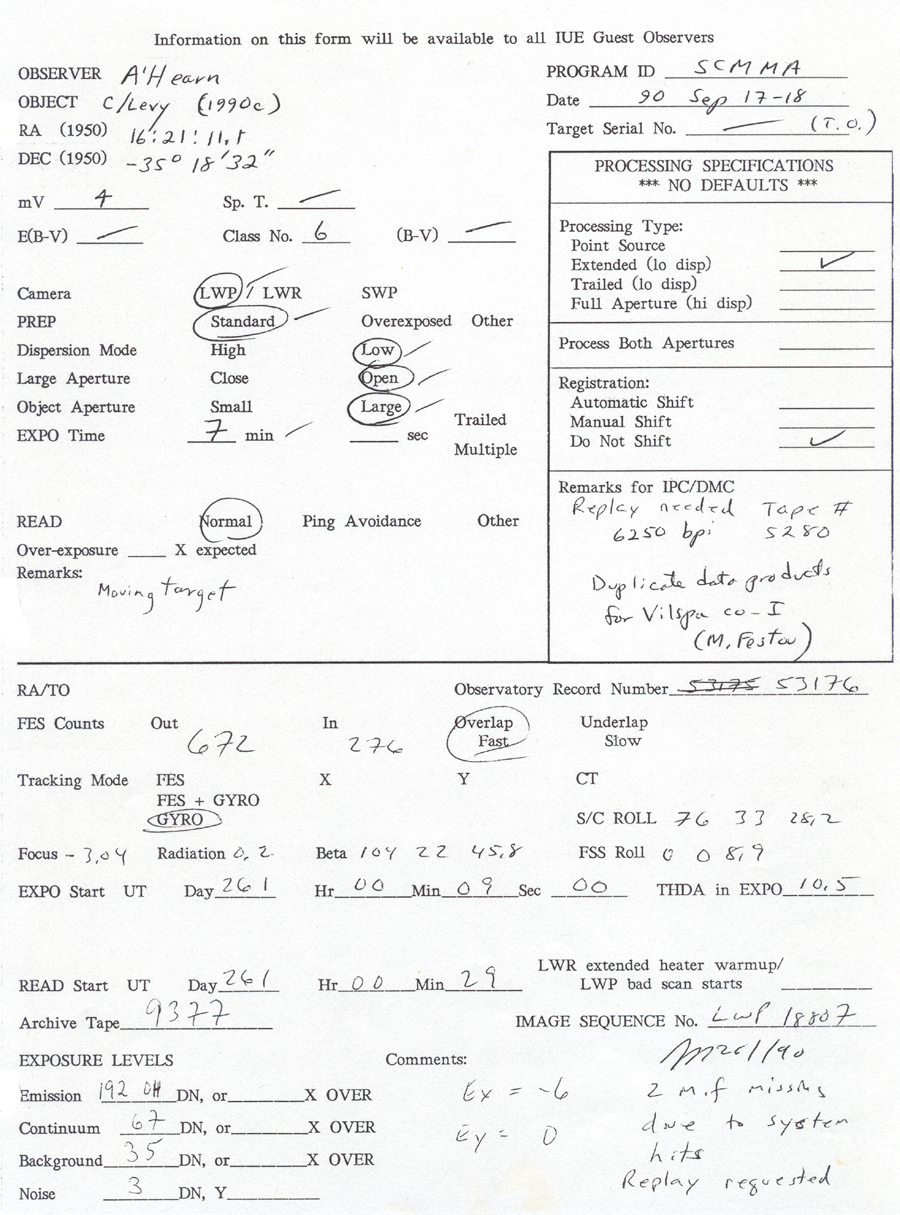 Information on this form will be available to all IUE Guest Observers
OBSERVER A'Hearn
OBJECT C/Levy (1990c)
RA (1950) 16:21:11.1
DEC (1950) -35° 18'32"
PROGRAM ID SCMMA
Date 90 Sep 17-18
Target Serial No. — (T.O.)
mV 4 Sp. T. —
E(B-V) — Class No. 6 (B-V) —
PROCESSING SPECIFICATIONS
*** NO DEFAULTS ***
Processing Type:
Point Source
Extended (lo disp) ✓
Trailed (lo disp)
Full Aperture (hi disp)
Process Both Apertures
Registration:
Automatic Shift
Manual Shift
Do Not Shift ✓
Remarks for IPC/DMC
Replay needed Tape #
6250 bpi 5280
Duplicate data products
for Vilspa co-I
(M. Festou)
Camera LWP / LWR SWP
PREP Standard Overexposed Other
Dispersion Mode High Low
Large Aperture Close Open
Object Aperture Small Large
EXPO Time 7 min sec
Trailed
Multiple
READ Normal Ping Avoidance Other
Over-exposure X expected
Remarks:
Moving target
RA/TO Observatory Record Number 53175 53176
FES Counts Out 672 In 276 Overlap Underlap
Fast Slow
Tracking Mode FES X Y CT
FES + GYRO
GYRO S/C ROLL 76 33 28.2
Focus -3.04 Radiation 0.2 Beta 104 22 45.8 FSS Roll 0 0 8.9
EXPO Start UT Day 261 Hr 00 Min 09 Sec 00 THDA in EXPO 10.5
LWR extended heater warmup/
LWP bad scan starts
READ Start UT Day 261 Hr 00 Min 29
Archive Tape 9377 IMAGE SEQUENCE No. LWP 18807
EXPOSURE LEVELS Comments: 261/90
Emission 192 OH DN, or X OVER Ex = -6 2 m.f missing
Continuum 67 DN, or X OVER Ey = 0 due to system
Background 35 DN, or X OVER hits
Noise 3 DN, Y Replay requested